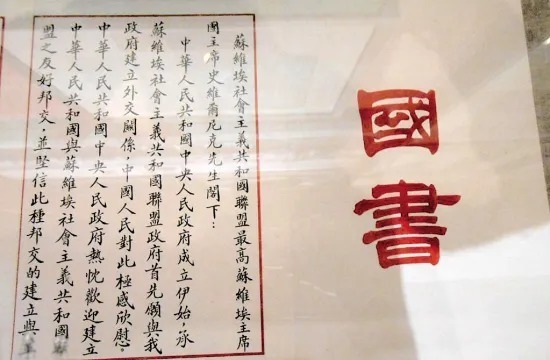 國書
蘇維埃社會主義共和國聯盟最高蘇維埃主席
團主席史維爾尼克先生閣下：
中華人民共和國中央人民政府成立伊始，承
蘇維埃社會主義共和國聯盟政府首先願與我
政府建立外交關係，中國人民對此極感欣慰。
中華人民共和國中央人民政府熱忱歡迎建立
中華人民共和國與蘇維埃社會主義共和國
盟之友好邦交，並堅信此種邦交的建立與